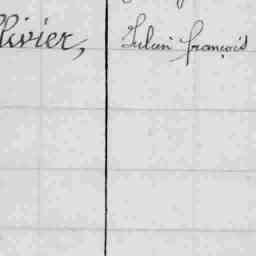 llivier, Julien françois